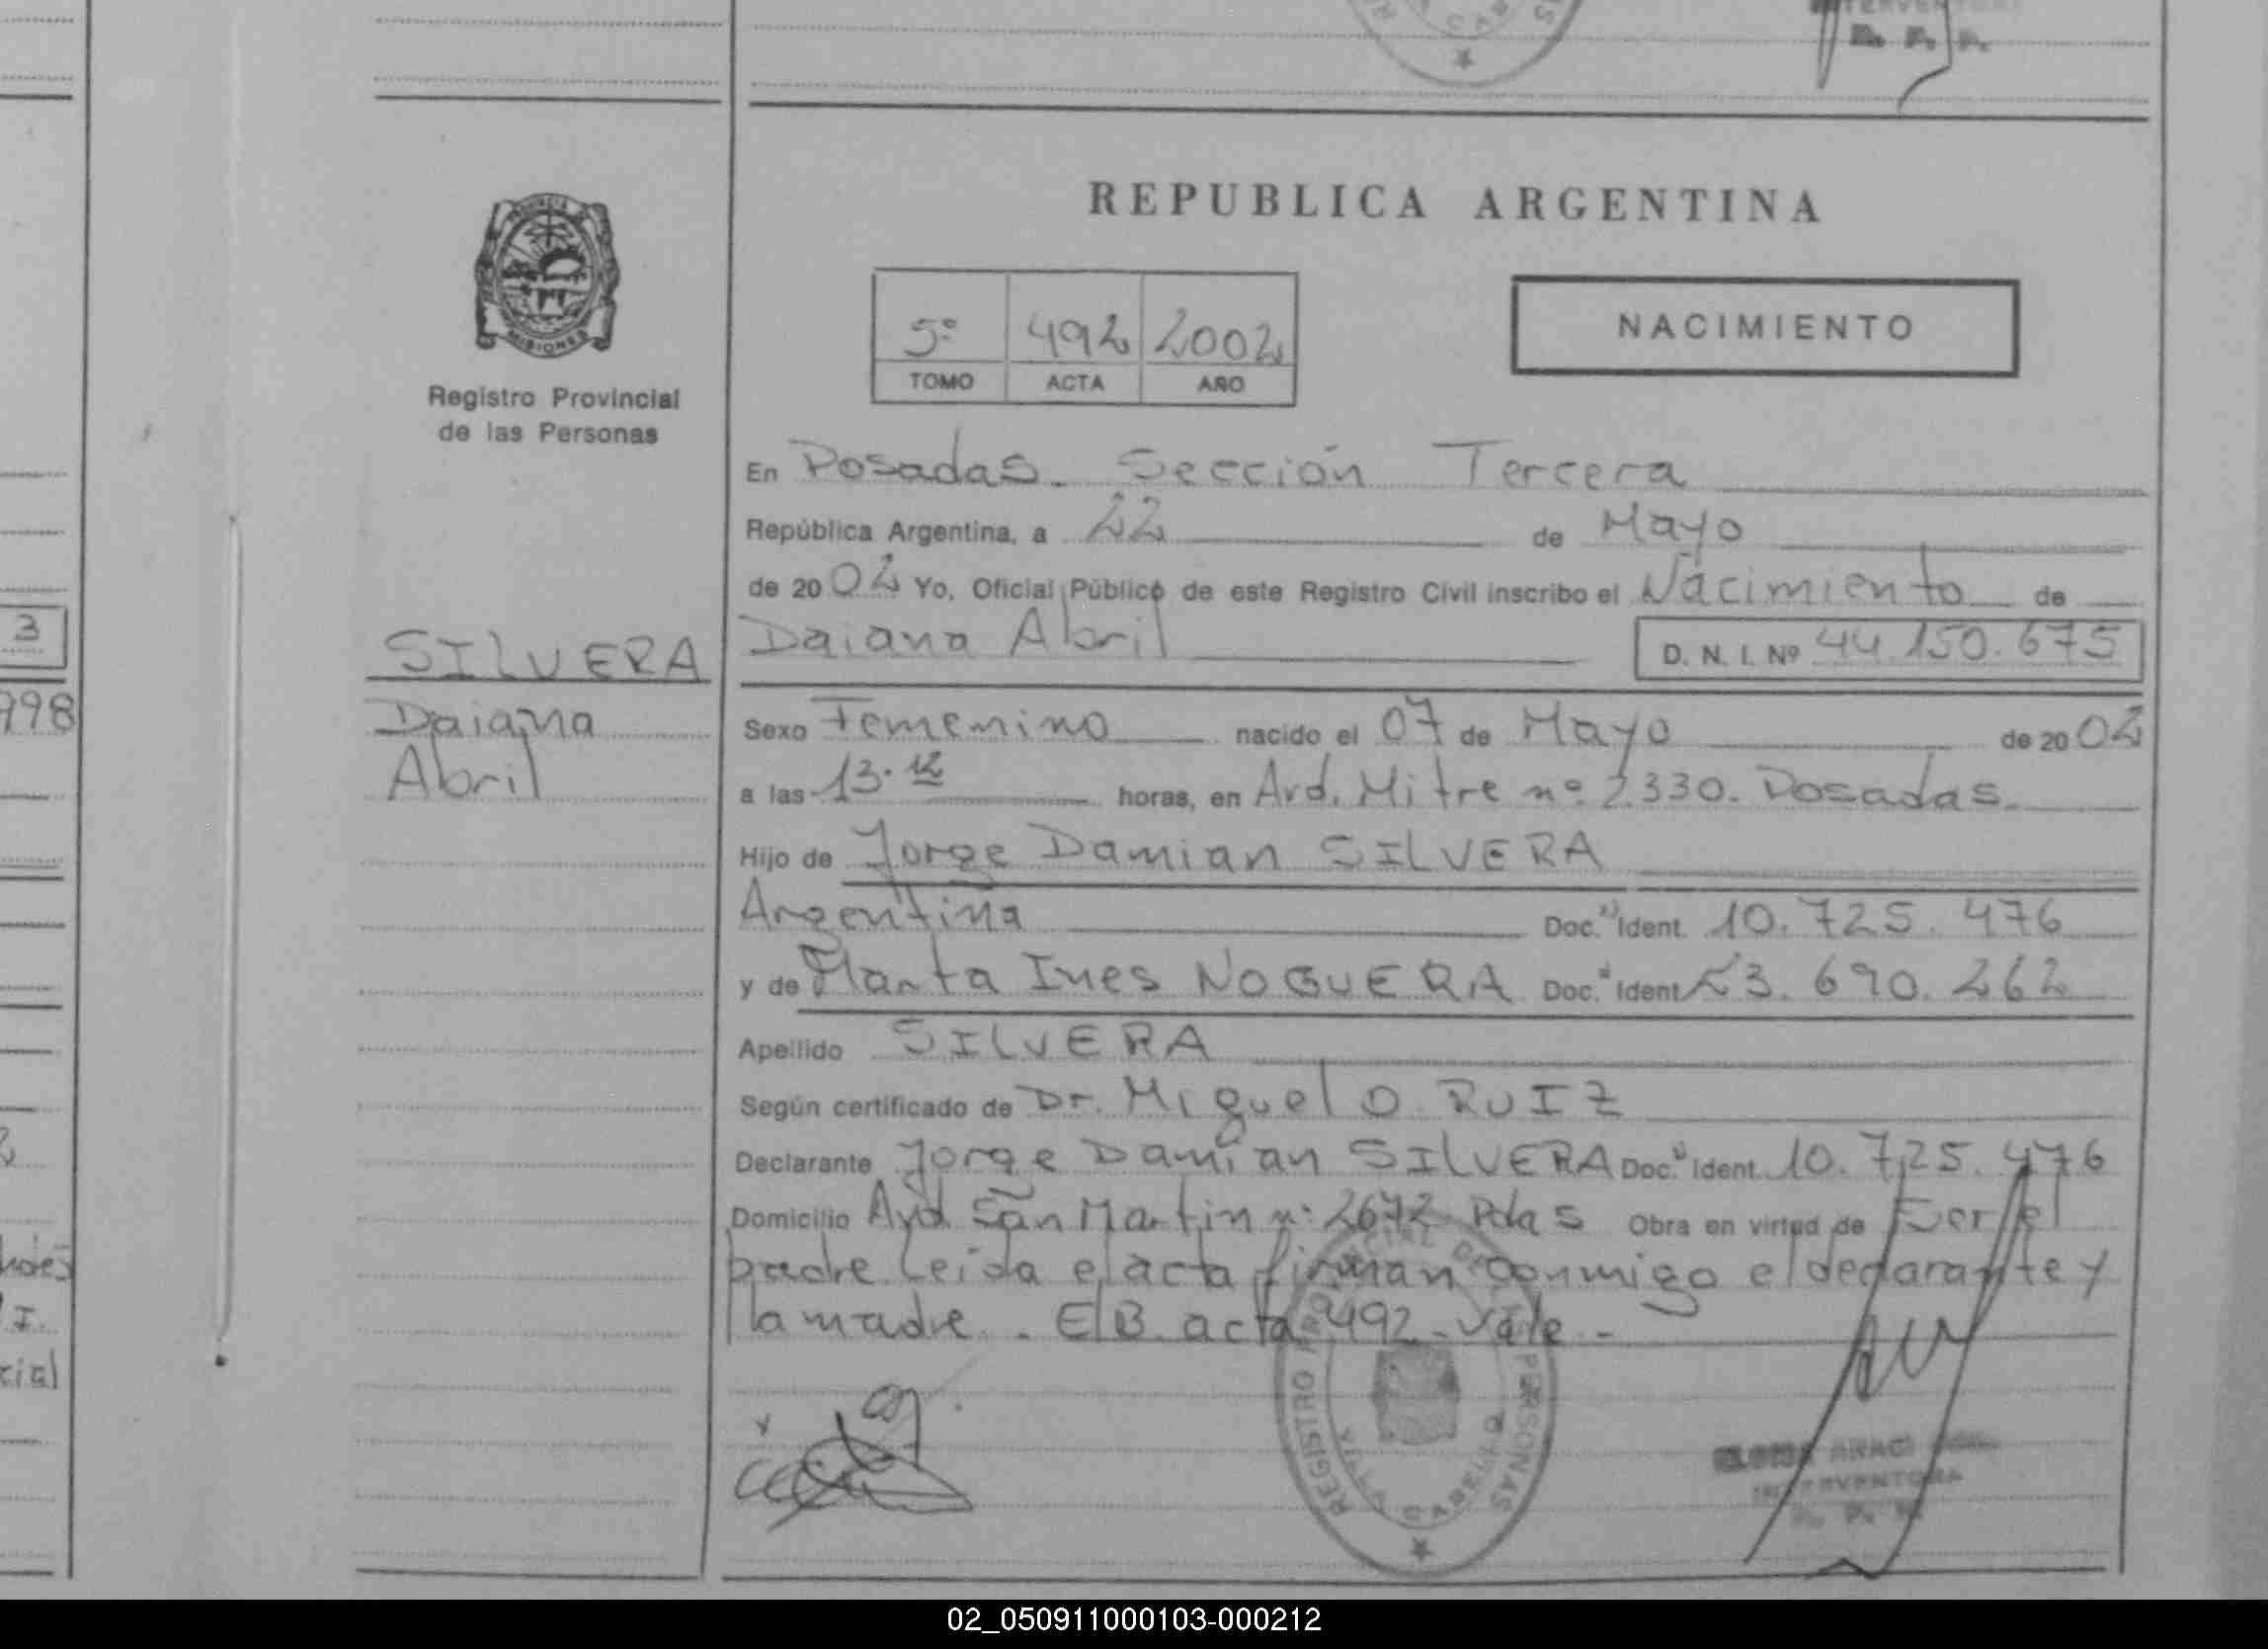 REPUBLICA ARGENTINA
5º 492 2002
TOMO ACTA AÑO
NACIMIENTO
PROVINCIA DE
MISIONES
Registro Provincial
de las Personas
SILVERA
Daiana
Abril
En Posadas. Sección Tercera
República Argentina, a 22 de Mayo
de 2002 Yo, Oficial Público de este Registro Civil inscribo el Nacimiento de
Daiana Abril D. N. I. Nº 44.150.675
Sexo Femenino nacido el 07 de Mayo de 2002
a las 13.12 horas, en Avd. Mitre nº 2330. Posadas.
Hijo de Jorge Damian SILVERA
Argentina Doc. Ident. 10.725.476
y de Marta Ines NOGUERA Doc. Ident. 23.690.262
Apellido SILVERA
Según certificado de Dr. Miguel O. RUIZ
Declarante Jorge Damian SILVERA Doc. Ident. 10.725.476
Domicilio Avd. San Martin nº: 2672 Pdas Obra en virtud de Ser el
padre Leida el acta firman conmigo el declarante y
la madre. E/B. acta 492 - Vale -
REGISTRO PROVINCIAL DE PERSONAS
INTERVENTORA
3
998
02_050911000103-000212